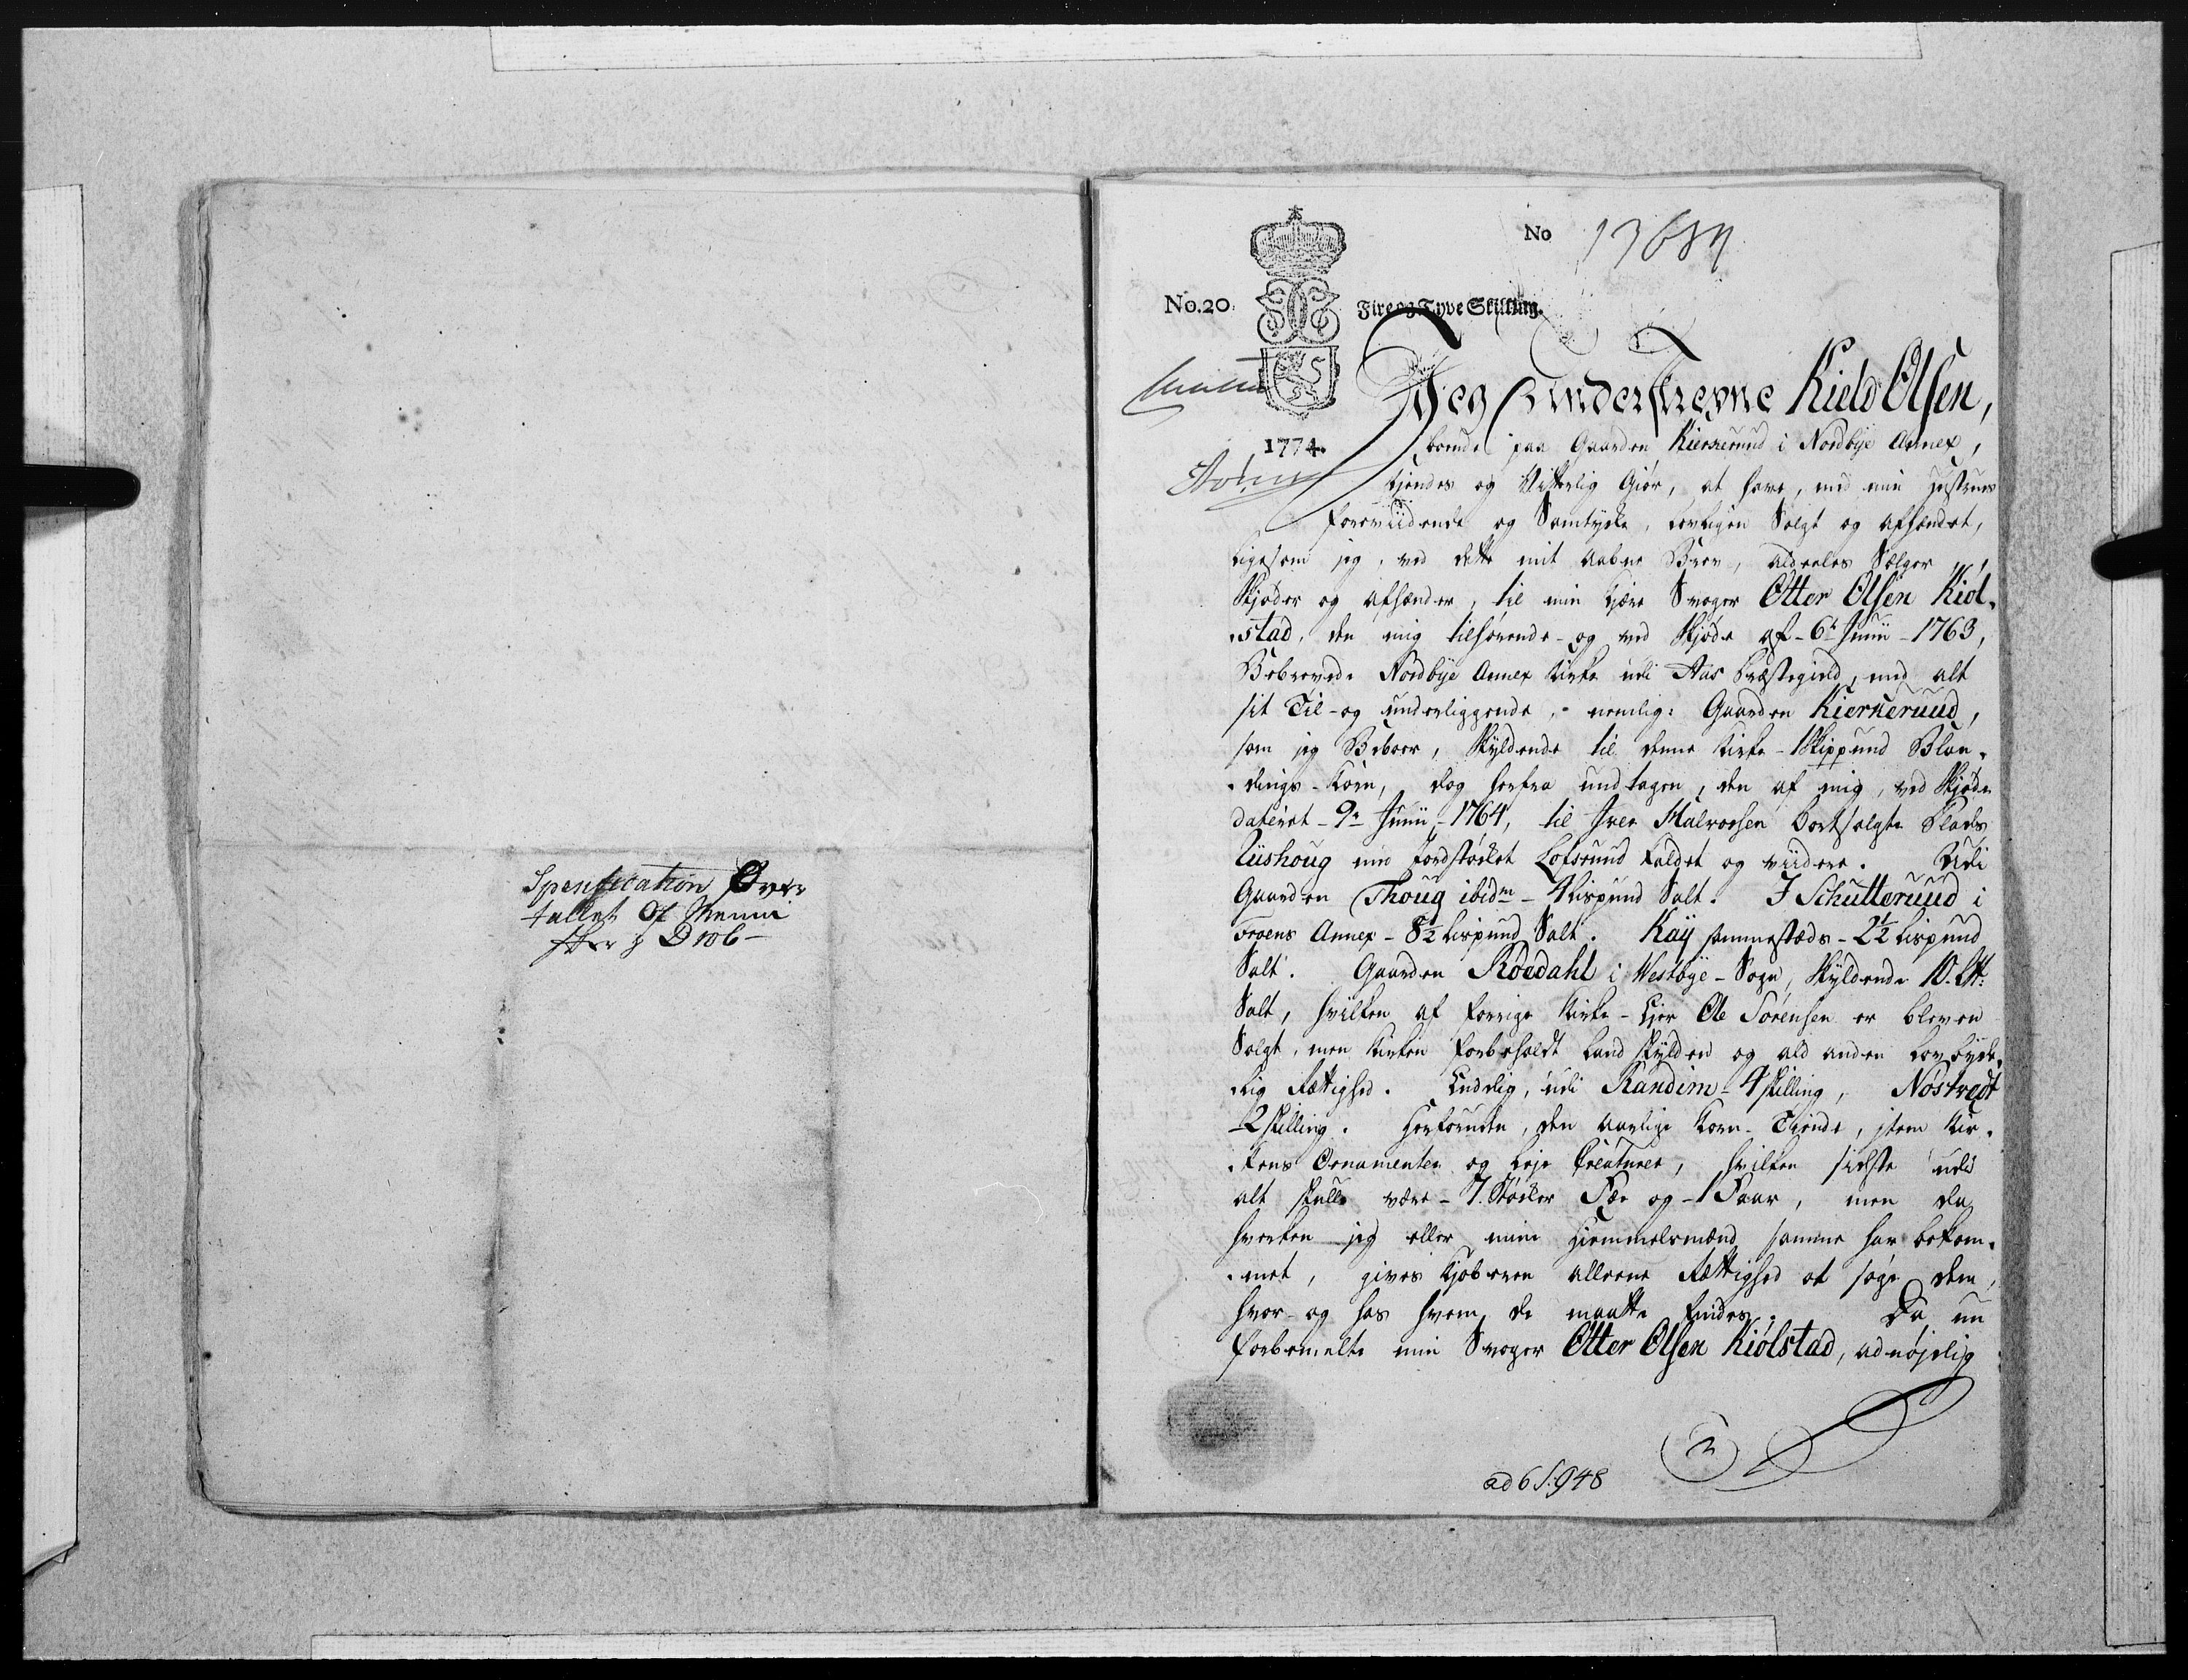 Specification Over
tallet Of Menni
sker J Drøb-
No 13684
No. 20. Fire og Tyve Skilling.
1774.
Jeg Underskrevne Kield Olsen,
boende paa Gaarden Kierkeruud i Nordbye Annex,
kjendes og Vitterlig Giør, at have, med min Hustrues
foreviidende og Samtykke, lovligen Solgt og afhændet,
ligesom jeg, ved dette mit aabne Brev, aldeeles Sælger,
Skjøder og afhænder, til min kjære Svoger Otter Olsen Kiol-
stad, den mig tilhørende- og ved Skjøde af 6te Junii 1763,
Bebrevede Nordbye Annex Kirke udi Aas Præstegield, med alt
sit Til- og underliggende, - nemlig: Gaarden Kierkeruud,
som jeg Beboer, Skyldende til denne Kirke - 1 Skippund Blan-
dings-Korn, dog herfra undtagen, den af mig, ved Skjøde
dateret - 9de Junii 1764, til Iver Halvorsen bortsolgte Plads
Liishoug med Jordstøcket Lofsruud kaldet og viidere. Udi
Gaarden Thoug ibidm - 4 Lispund Salt. I Schutteruud i
Froens Annex - 8½ Lispund Salt. Kaÿ sammestæds - 2½ Lispund
Salt. Gaarden Roedahl i Westbye-Sogn, Skyldende 10. L℔:
Salt, hvilken af forrige Kirke-Ejer Ole Sørensen er bleven
Solgt, men Kirken forbeholdt Landskylden og ald anden lovbyde-
lig Rettighed. Endelig, udi Randim - 4 skilling, Nøstvedt
- 2 skilling. Herforuden, den aarlige Korn-Tiende, item Kir-
kens Ornamenter og leje Creaturer, hvilken sidste udi
alt skulle være - 7. Støcker Fæe og - 1 Faar, men da
hverken jeg eller mine Hiemmelsmænd samme har bekom-
met, gives Kjøberen alleene Rettighed at søge dem,
hvor- og hos hvem, de maatte findes. Da nu
forbemelte min Svoger Otter Olsen Kiölstad, adnøjelig
ad 6 S. 948